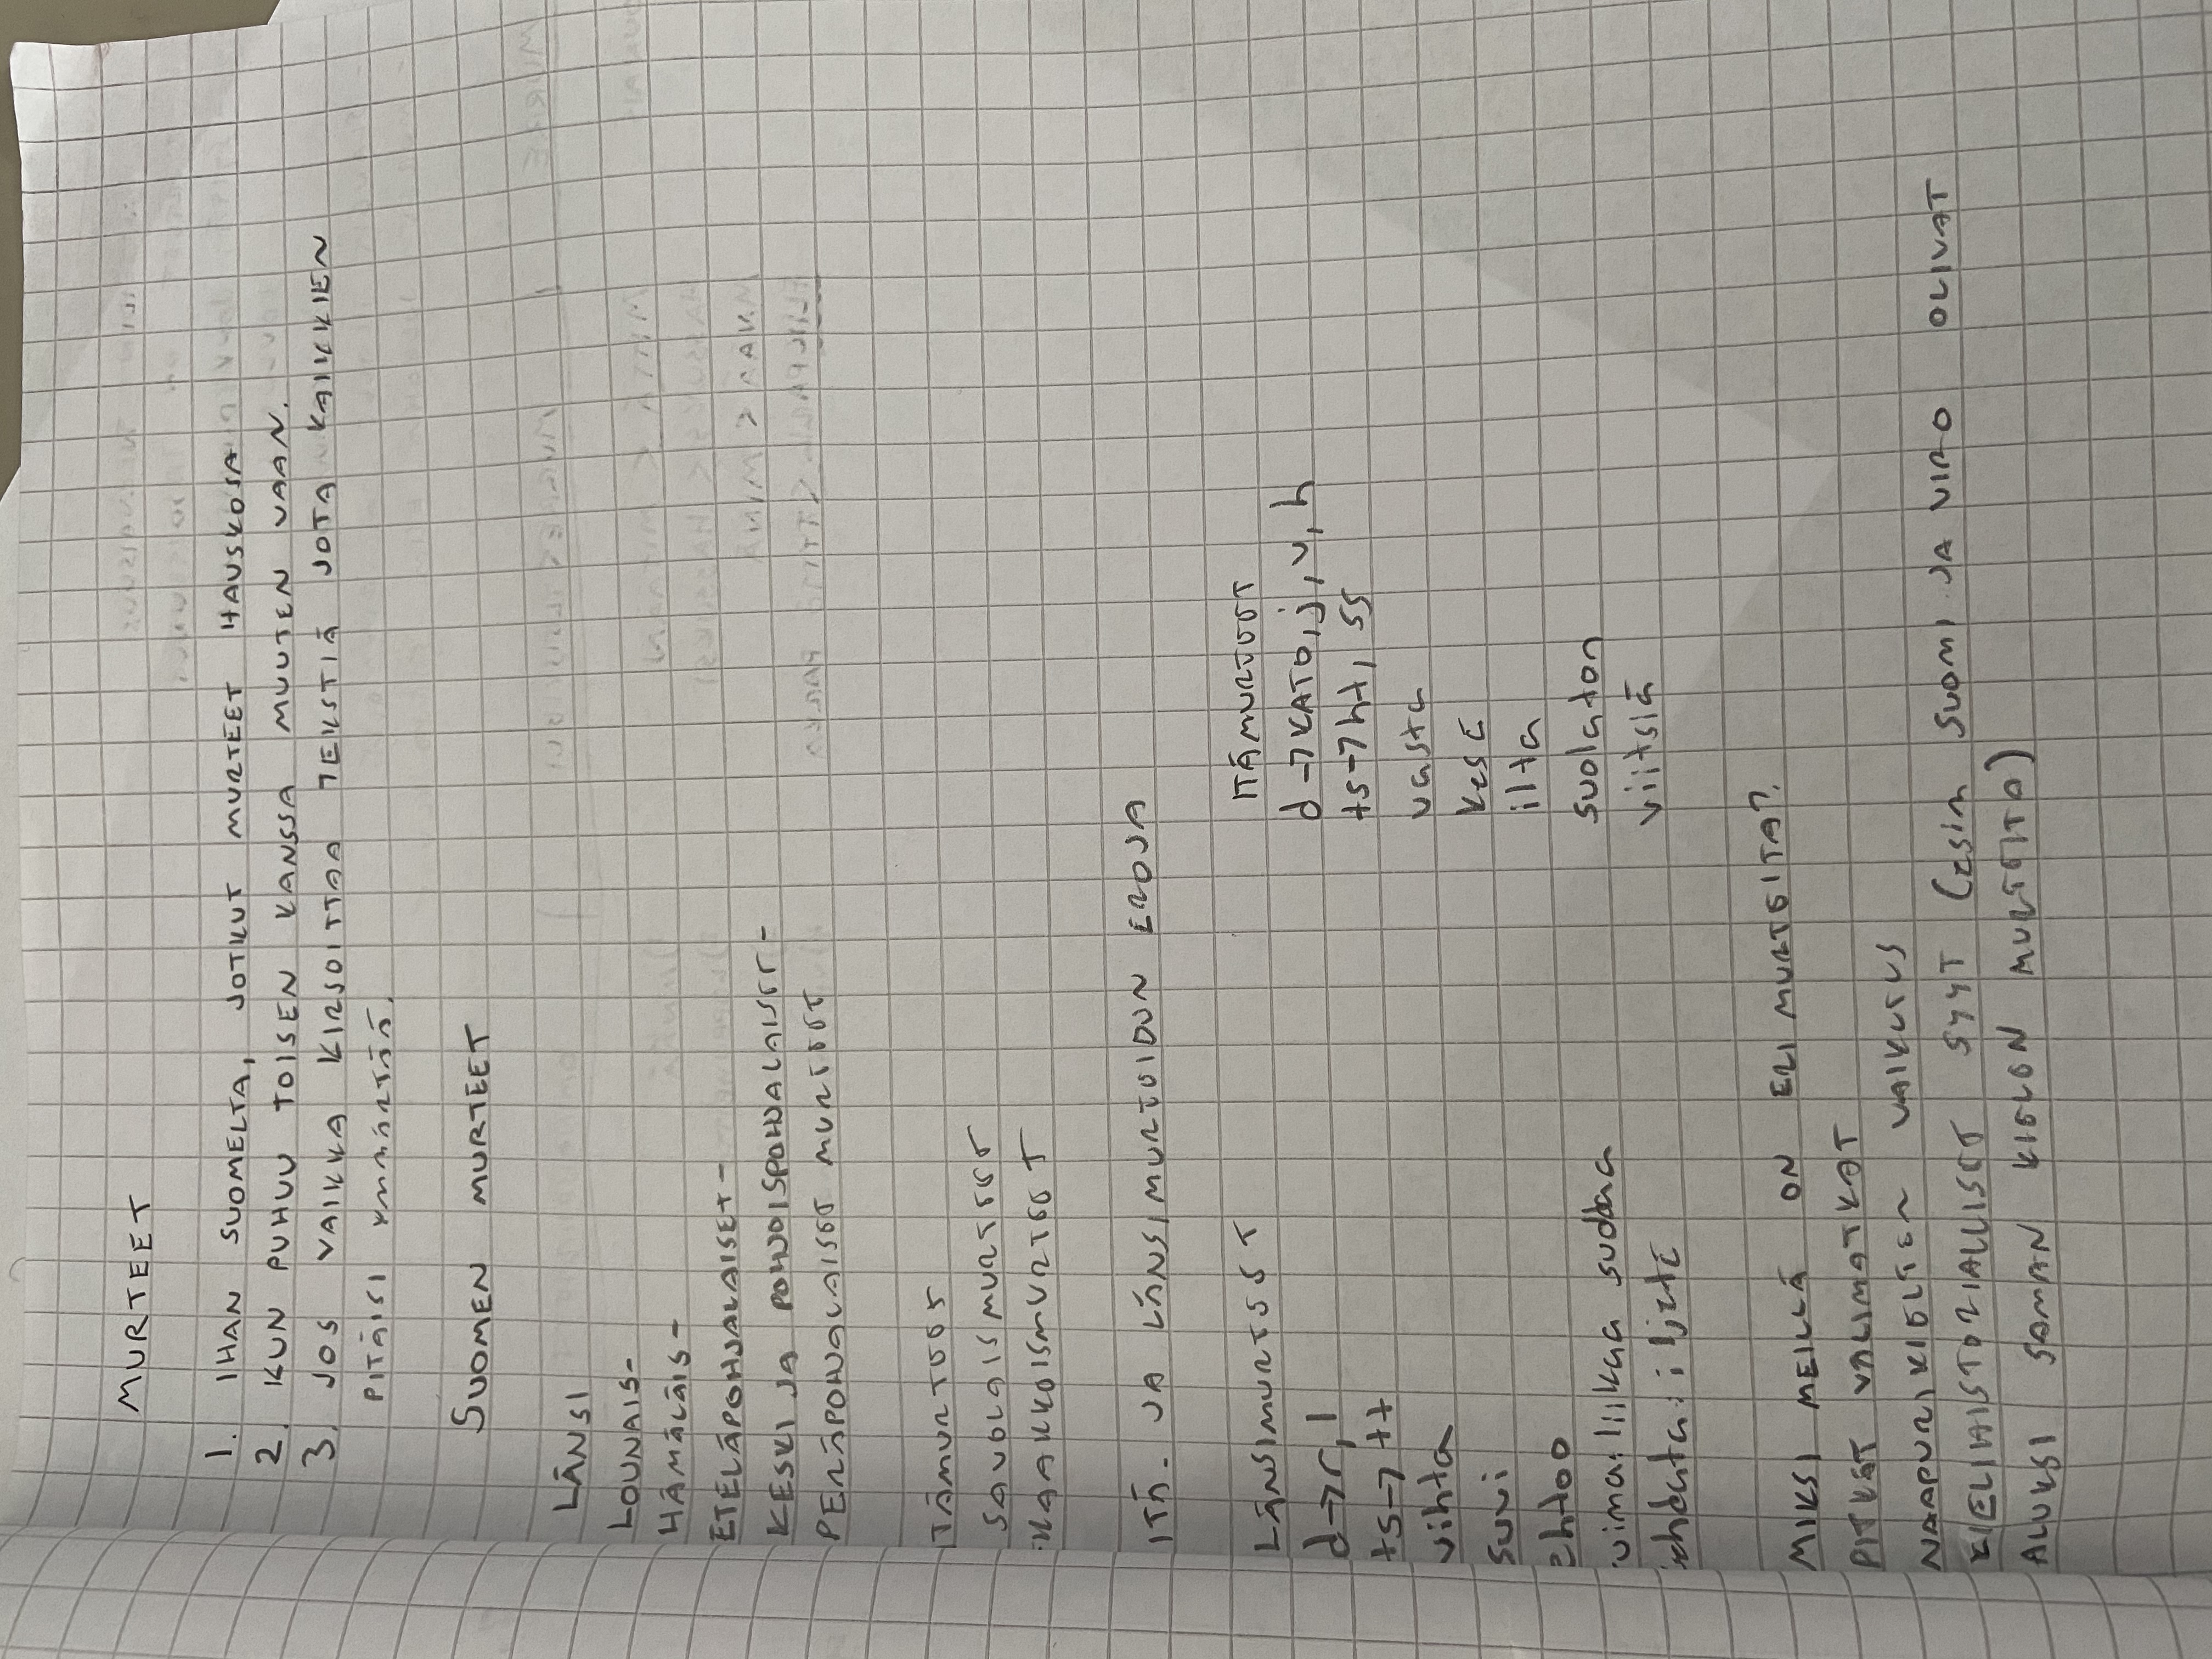 MURTEET
1. IHAN SUOMELTA, JOTKUT MURTEET HAUSKOSA
2. KUN PUHUU TOISEN KANSSA MUUTEN VAAN.
3. JOS VAIKKA KIRSOITTAA TEKSTIÄ JOTA KAIKKIEN
PITÄISI YMMÄRTÄÄ.
SUOMEN MURTEET
LÄNSI
LOUNAIS-
HÄMÄLÄIS-
ETELÄPOHJALAISET-
KESKI JA POHJOISPOHJALAISET-
PERÄPOHJALAISET MURTEET
ITÄMURTEET
SAVOLAISMURTEET
KAAKKOISMURTEET
ITÄ- JA LÄNSIMURTEIDEN EROJA
LÄNSIMURTEET ITÄMURTEET
d→r, l d→KATO, j, v, h
ts→tt ts→ht, ss
vihta vasta
suvi kesä
ehtoo ilta
liikaa suolaa suolaton
viitsiä
MIKSI MEILLÄ ON ERI MURTEITA?
PITKÄT VÄLIMATKAT
NAAPURIKIELIEN VAIKUTUS
KIELIHISTORIALLISET SYYT (esim SUOMI JA VIRO OLIVAT
ALUKSI SAMAN KIELEN MURTEITA)